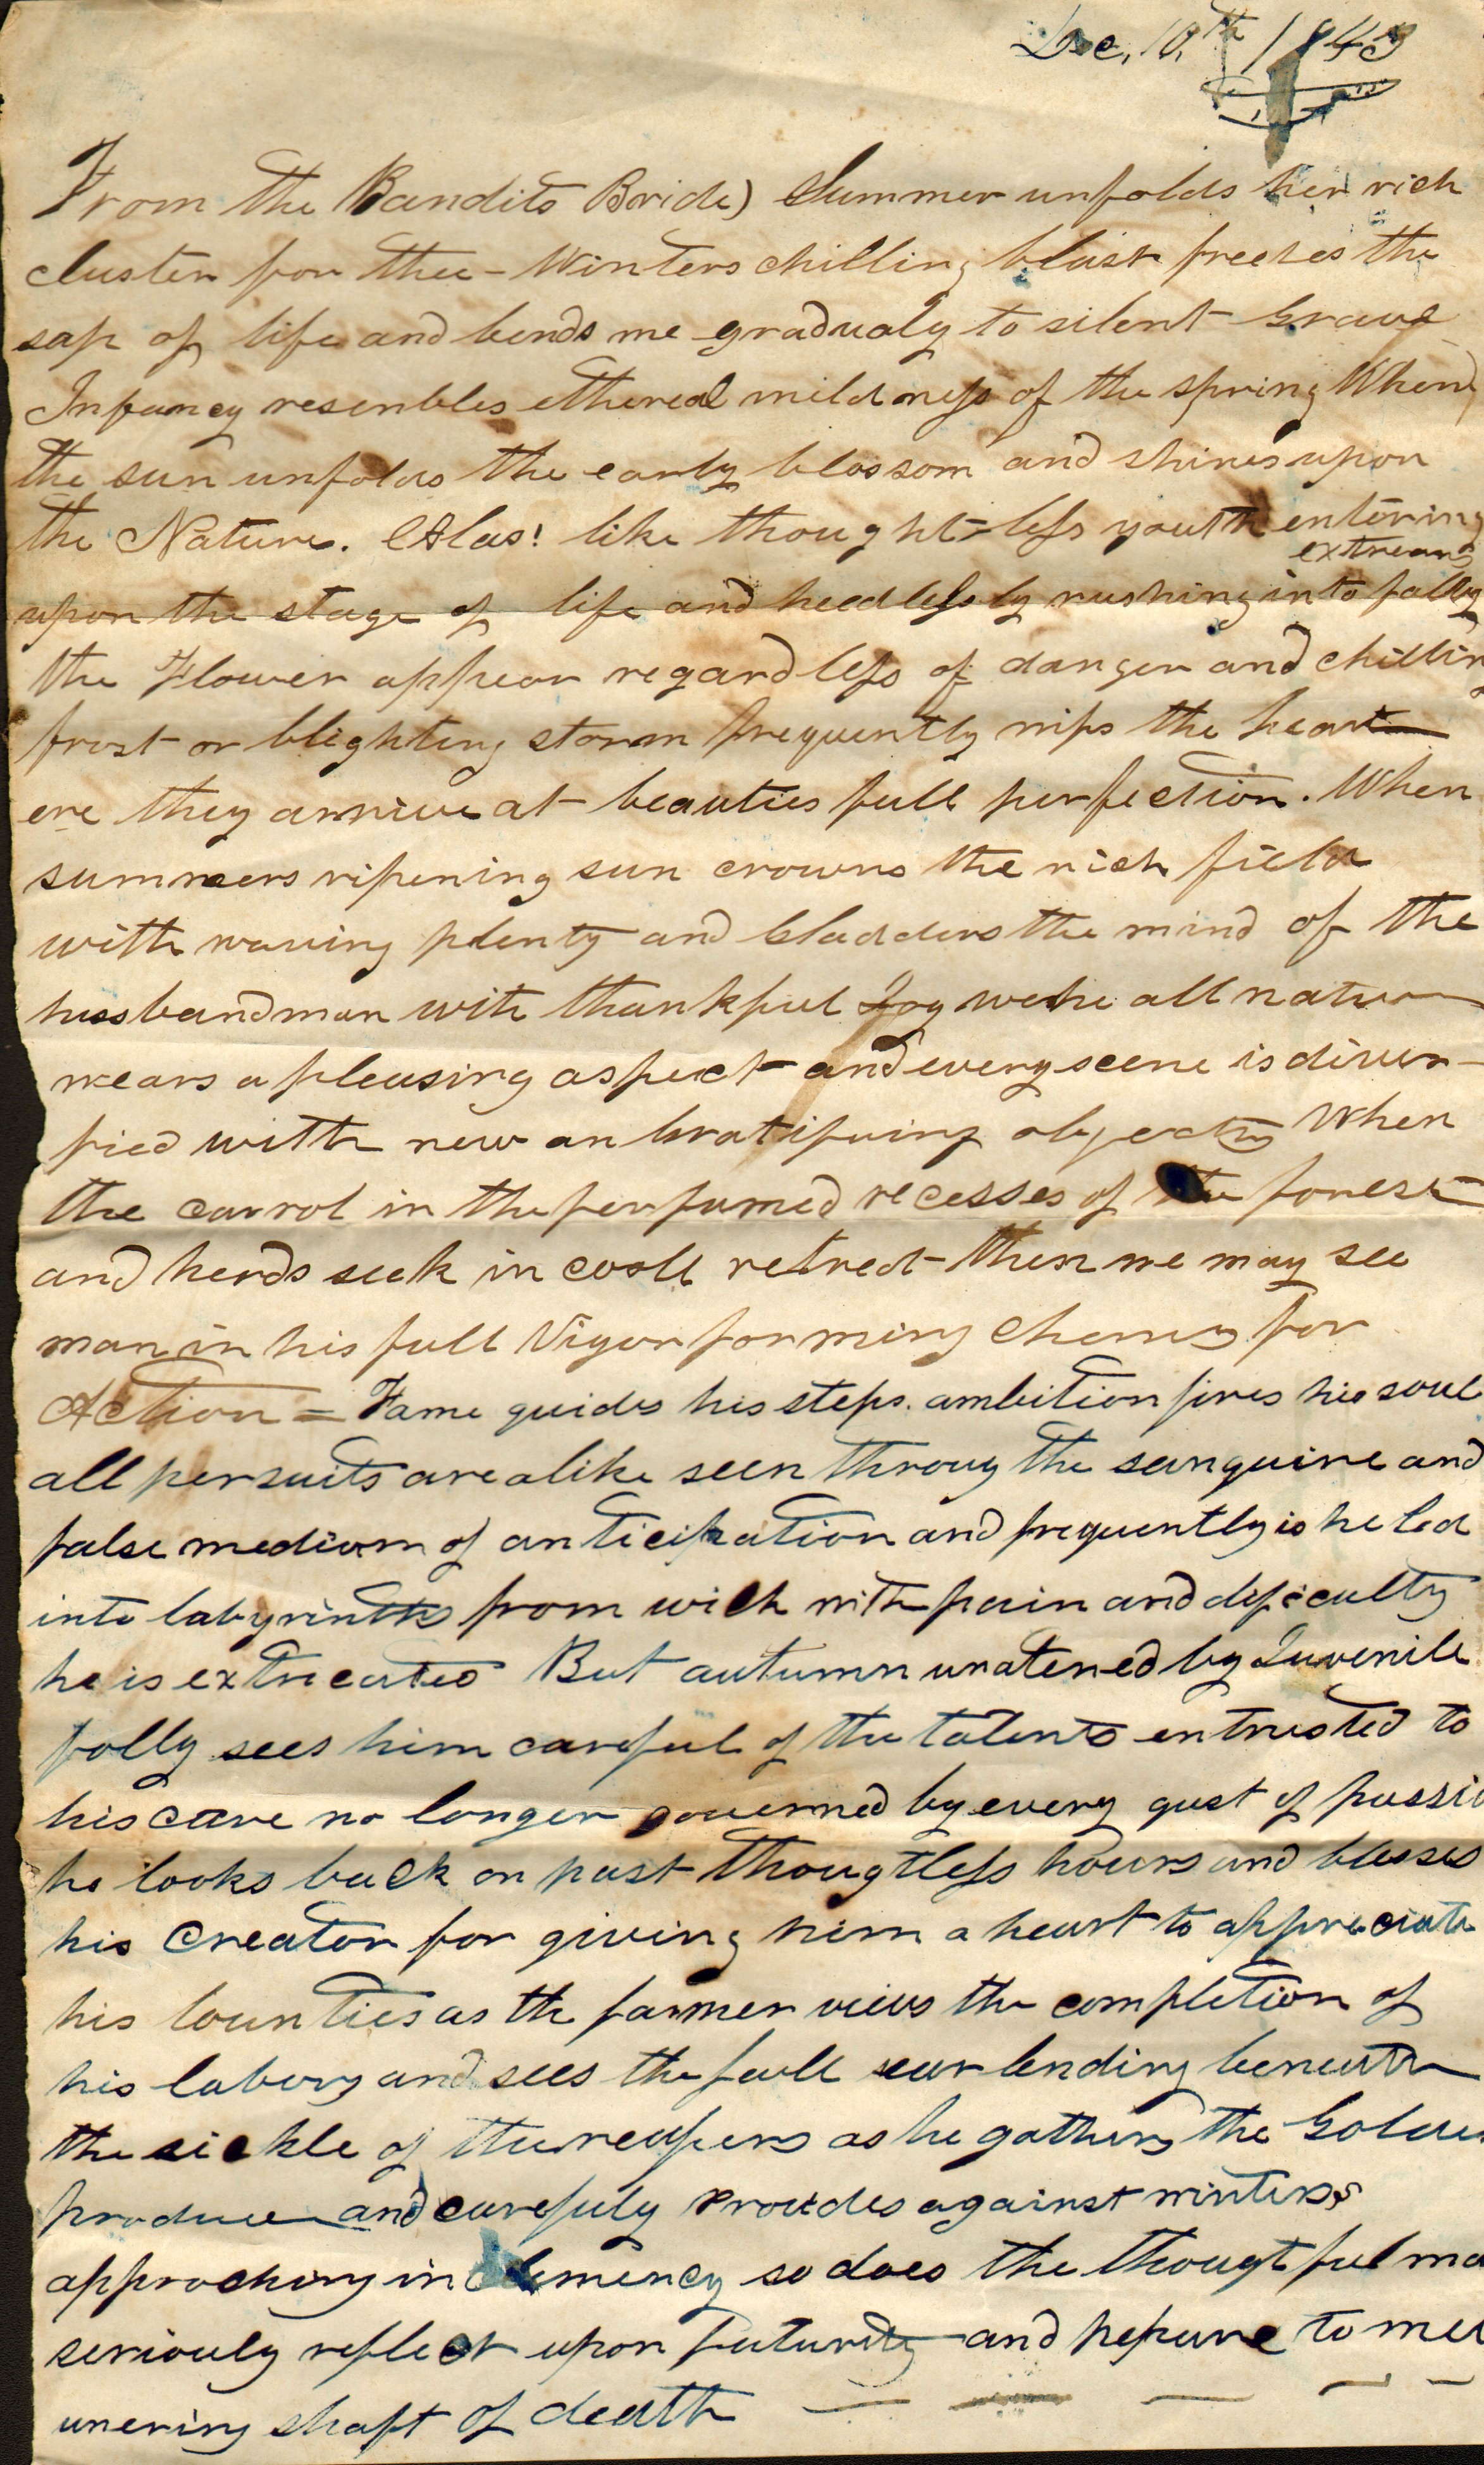 Dec, 10,th 1843
From the Bandits Bride) Summer unfolds her rich
cluster for thee - Winters chilling blast freezes the
sap of life and bends me gradualy to silent Grave
Infancy resenbles ethereal mildness of the spring When
the sun unfolds the early blossom and shines upon
the Nature. Alas! like thought=less youth entering
extreams
upon the stage of life and heedlessly rushing into folly
the Flower appear regardless of danger and chillin
frost or blighting storm frequently nips the heart
ere they arrive at beauties full perfection. When
summers ripening sun crowns the rich field
with waving plenty and Gladdens the mind of the
husbandman with thankful Joy all nature
wears a pleasing aspect and every scene is diver-
fied with new an Gratifying objects When
the carrol in the perfumed recesses of the forest
and herds seek in cooll retreat then we may see
man in his full Vigor forming for
Action = Fame guides his steps. ambition fires his soul
all persuits are alike seen throug the sanguine and
false medium of anticipation and frequently is he led
into labyrinths from wich with pain and dificulty
he is extricated But autumn by Juvenile
folly sees him careful of the talents entrusted to
his care no longer governed by every gust of passio
he looks back on past thougtless hours and blesses
his Creator for giving him a heart to appreciate
his bounties as th farmer views the completion of
his labors and sees the full ear bending beneath
the sickle of the reapers as he gathers the Golden
produce and carefuly provides against winters
approching inclemency so does the thougtful ma
seriouly reflect upon futurity and pepare to mee
unering shaft of death